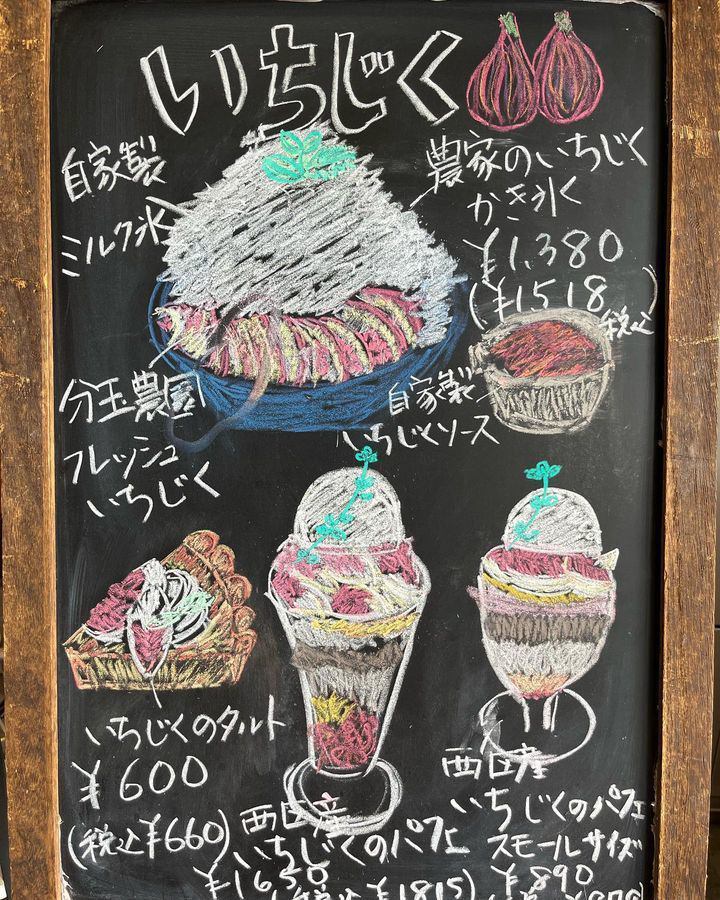 いちじく
自家製
ミルク氷
農家のいちじく
かき氷
¥1,380
(¥1518
税込)
分玉農園
フレッシュ
いちじく
自家製
いちじくソース
いちじくのタルト
¥600
(税込¥660)
西区産
いちじくのパフェ
¥1650
(税込¥1815)
西区産
いちじくのパフェ
スモールサイズ
¥890